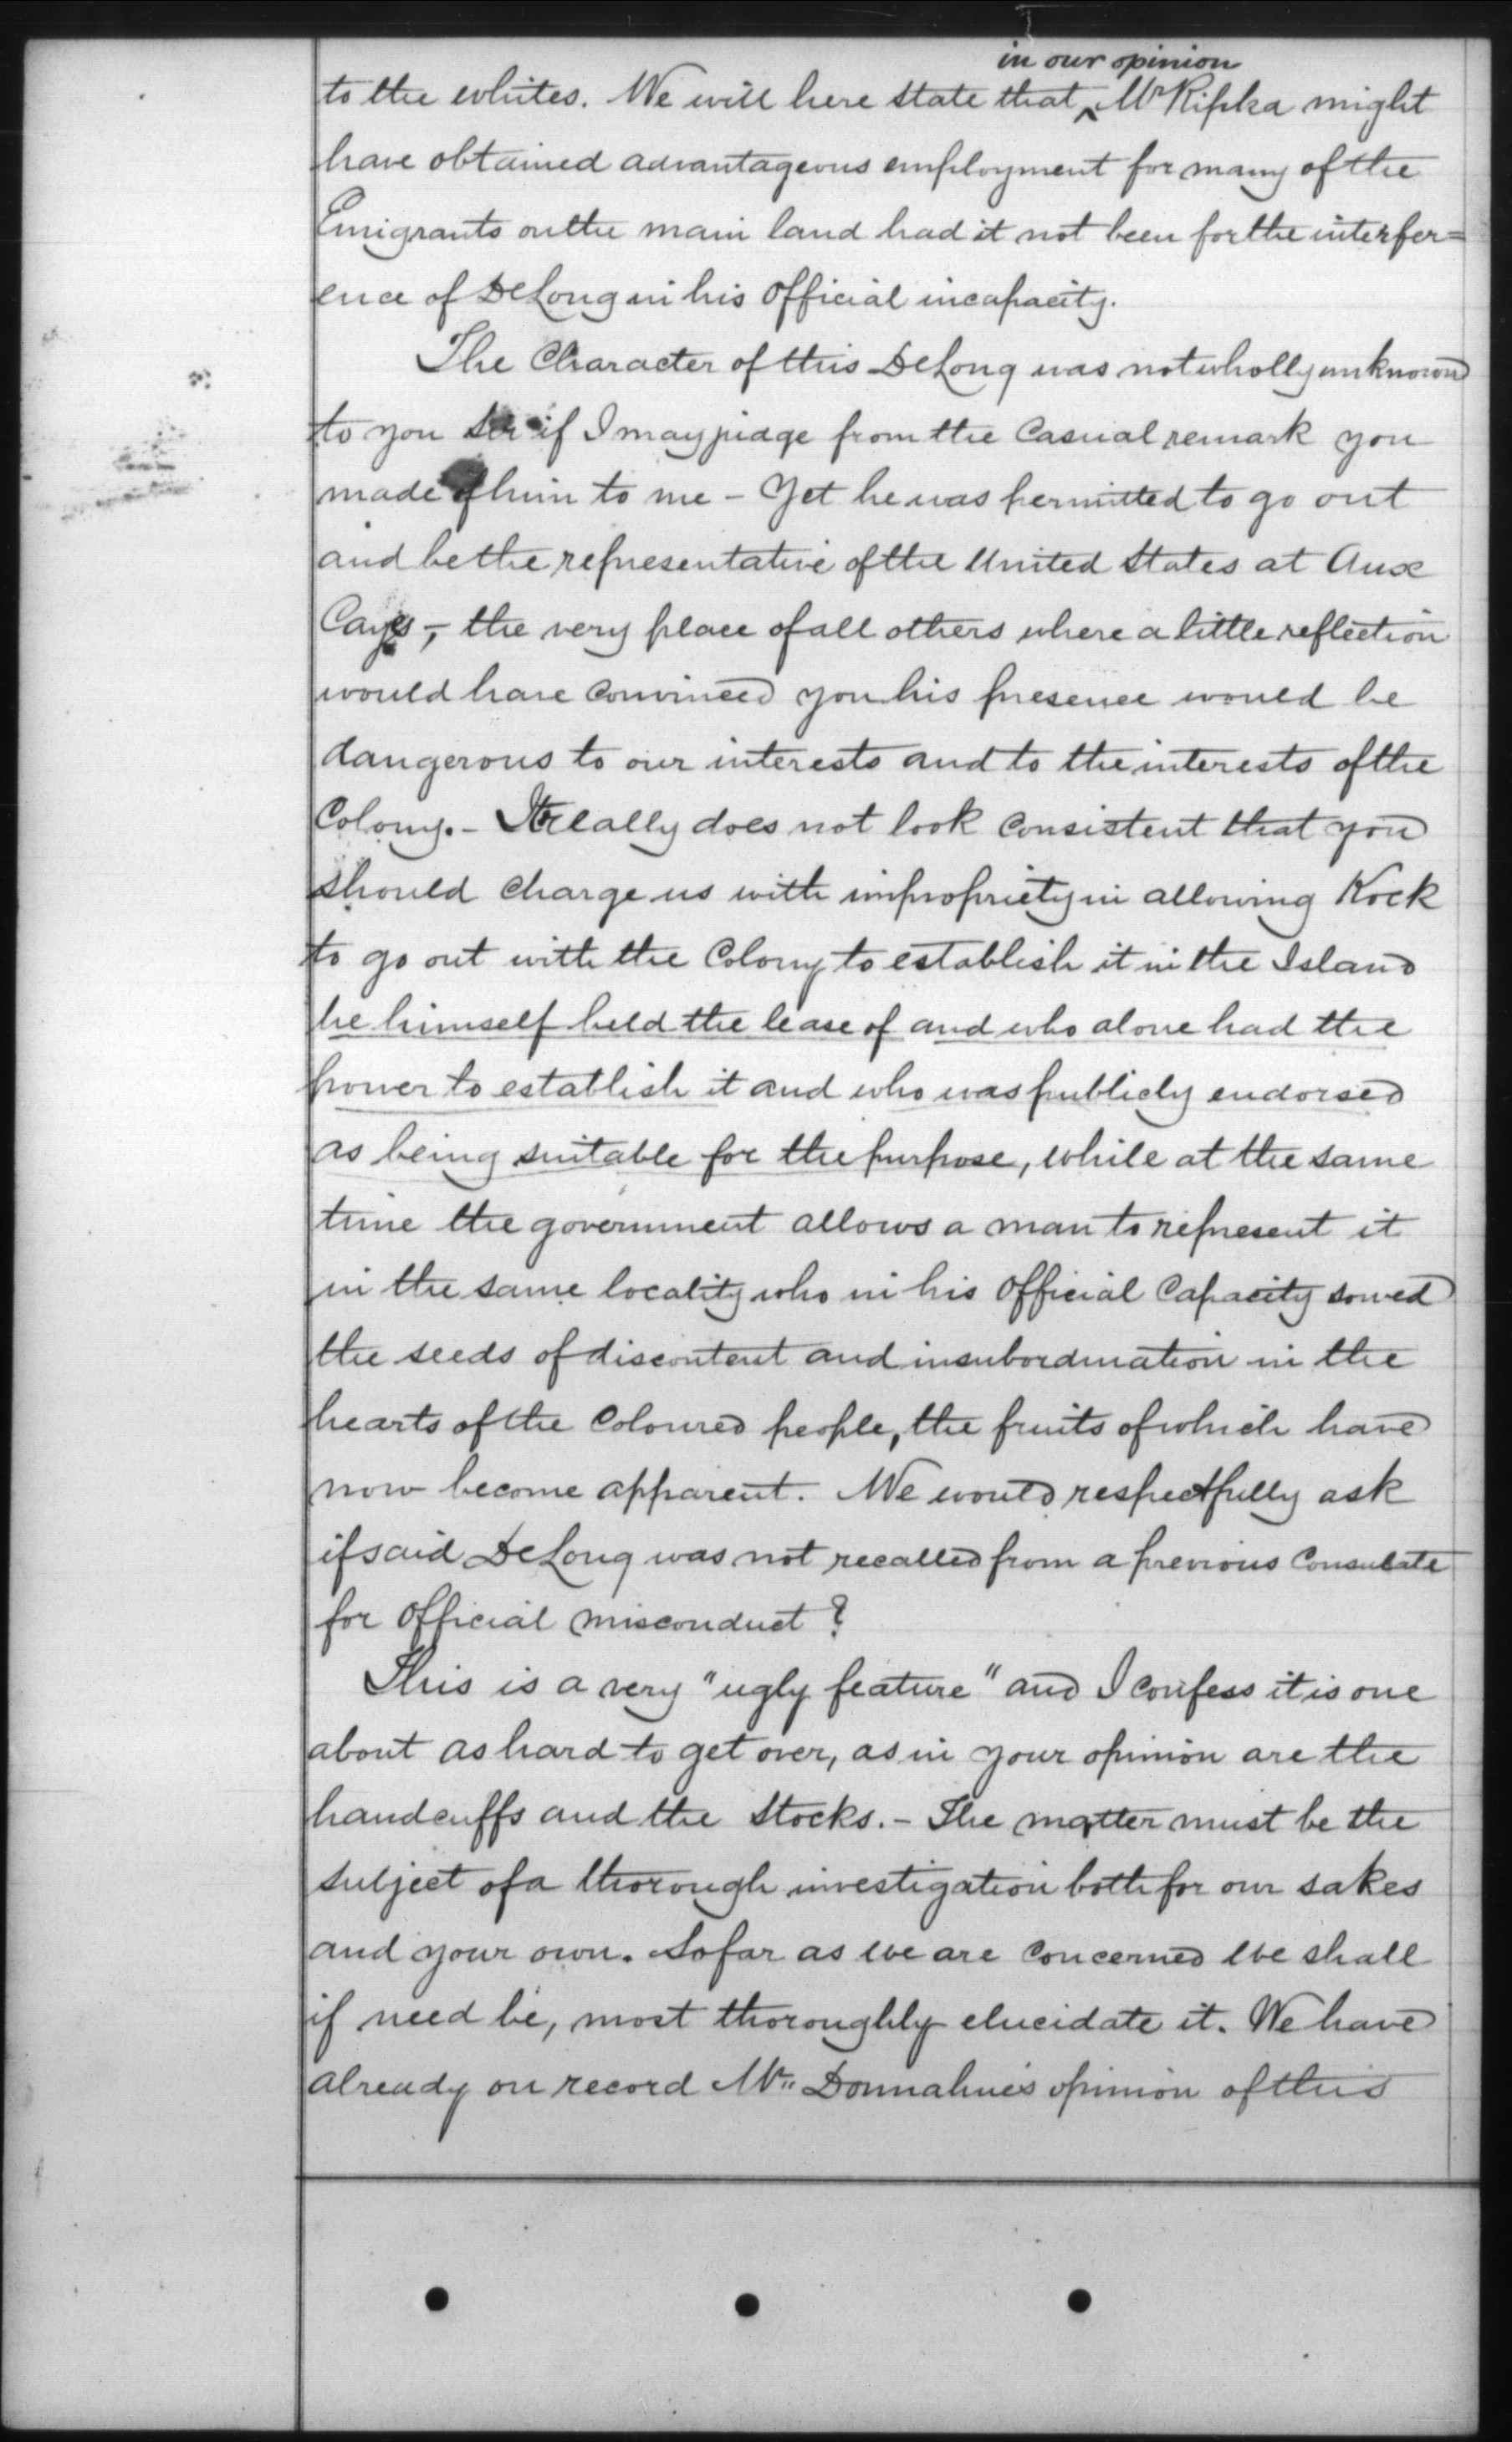 in our opinion
to the whites. We will here state that ‸ Mr Ripka might
have obtained advantageous employment for many of the
Emigrants on the main land had it not been for the interfer=
ence of DeLong in his official incapacity.
The Character of this DeLong was not wholly unknown
to you Sir if I may judge from the Casual remark you
made of him to me - Yet he was permitted to go out
and be the representative of the United States at Aux
Cayes -, the very place of all others where a little reflection
would have Convinced you his presence would be
dangerous to our interests and to the interests of the
Colony. - It really does not look Consistent that you
should Charge us with impropriety in allowing Kock
to go out with the Colony to establish it in the Island
he himself held the lease of and who alone had the
power to establish it and who was publicly endorsed
as being suitable for the purpose, while at the same
time the government allows a man to represent it
in the same locality who in his Official Capacity sowed
the seeds of discontent and insubordination in the
hearts of the Coloured people, the fruits of which have
now become apparent. We would respectfully ask
if said DeLong was not recalled from a previous Consulate
for Official Misconduct?
This is a very "ugly feature" and I Confess it is one
about as hard to get over, as in your opinion are the
handcuffs and the Stocks. - The matter must be the
subject of a thorough investigation both for our sakes
and your own. So far as we are Concerned we shall
if need be, most thoroughly elucidate it. We have
already on record Mr. Donnahue's opinion of this